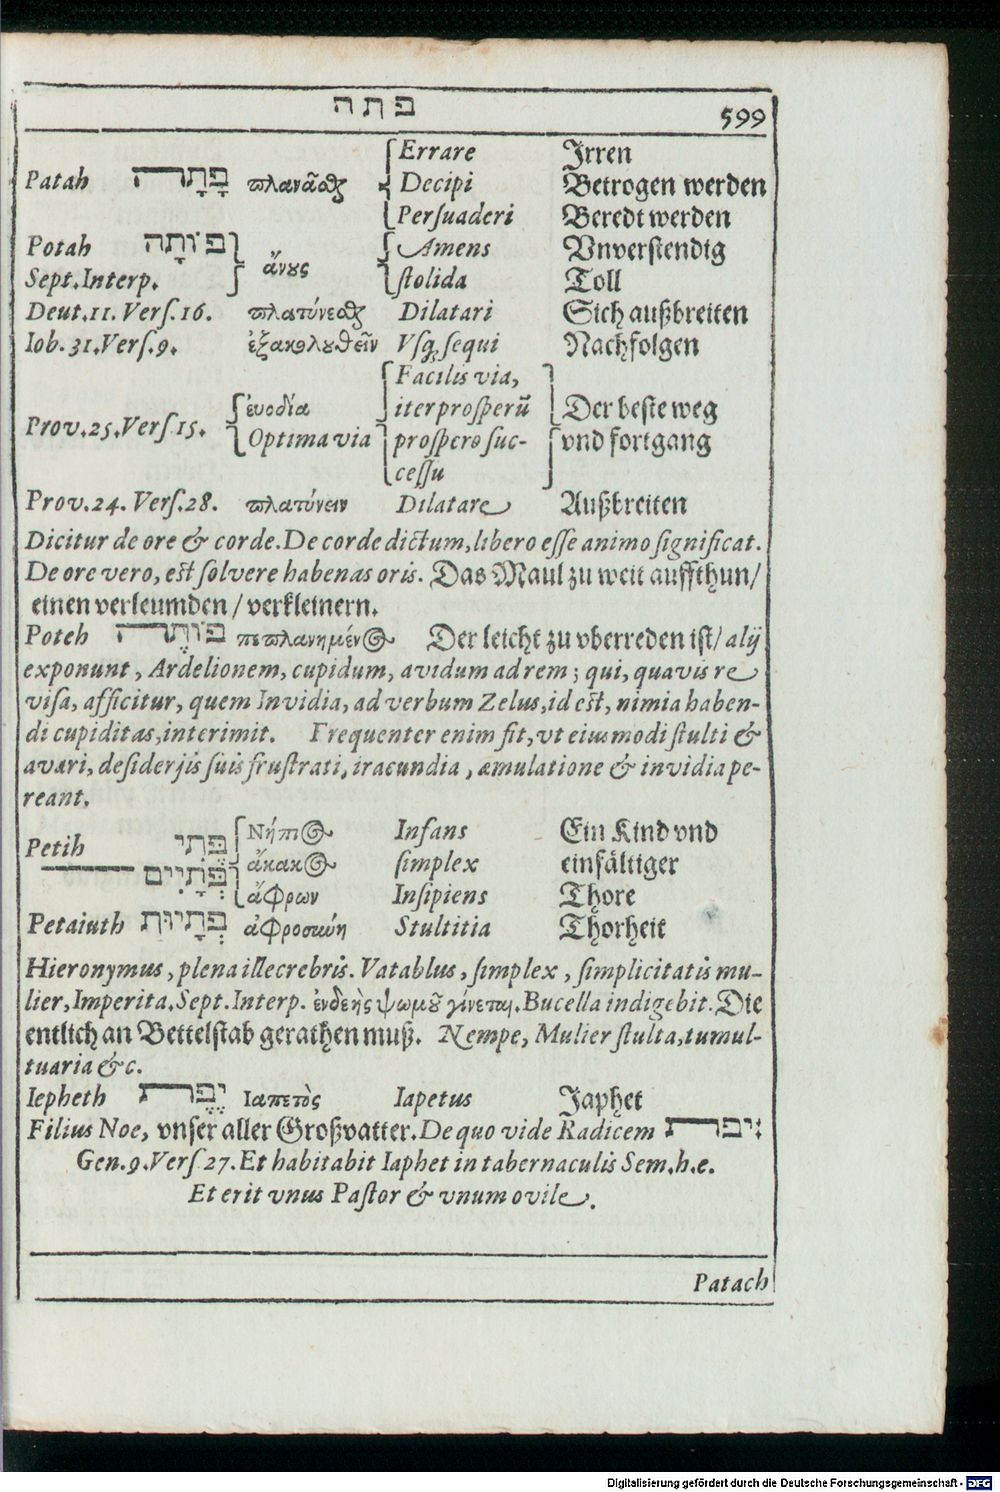 פתה 599
Errare Jrren
Patah פָּתָה πλανᾶσθαι Decipi Betrogen werden
Persuaderi Beredt werden
Potah פוֹתָה Amens Vnverstendig
ἄνους
Sept. Interp. stolida Toll
Deut. 11. Vers. 16. πλατύνεσθαι Dilatari Sich außbreiten
Iob. 31. Vers. 9. ἐξακολουθεῖν Vsq; sequi Nachfolgen
Facilis via,
ἐυοδία iter prosperū Der beste weg
Prov. 25. Vers 15. Optima via prospero suc- vnd fortgang
cessu
Prov. 24. Vers. 28. πλατύνειν Dilatare Außbreiten
Dicitur de ore & corde. De corde dictum, libero esse animo significat.
De ore vero, est solvere habenas oris. Das Maul zu weit auffthun/
einen verleumden / verkleinern.
Poteh פוֹתֶה πεπλανημένος Der leicht zu vberreden ist/ alij
exponunt, Ardelionem, cupidum, avidum ad rem; qui, quavis re
visa, afficitur, quem Invidia, ad verbum Zelus, id est, nimia haben-
di cupiditas, interimit. Frequenter enim fit, vt eiusmodi stulti &
avari, desiderijs suis frustrati, iracundia, æmulatione & invidia pe-
reant.
Νήπιος Infans Ein Kind vnd
Petih פֶּתִי
ἄκακος simplex einfältiger
פְּתָיִים
ἄφρων Insipiens Thore
Petaiuth פְּתָיוּת ἀφροσύνη Stultitia Thorheit
Hieronymus, plena illecrebris. Vatablus, simplex, simplicitatis mu-
lier, Imperita. Sept. Interp. ἐνδεὴς ψωμοῦ γίνεται. Bucella indigebit. Die
entlich an Bettelstab gerathen muß. Nempe, Mulier stulta, tumul-
tuaria &c.
Iepheth יֶפֶת Ιαπετὸς Iapetus Japhet
Filius Noe, vnser aller Großvatter. De quo vide Radicem יפת:
Gen. 9. Vers 27. Et habitabit Iaphet in tabernaculis Sem. h. e.
Et erit vnus Pastor & vnum ovile.
Patach
Digitalisierung gefördert durch die Deutsche Forschungsgemeinschaft - DFG